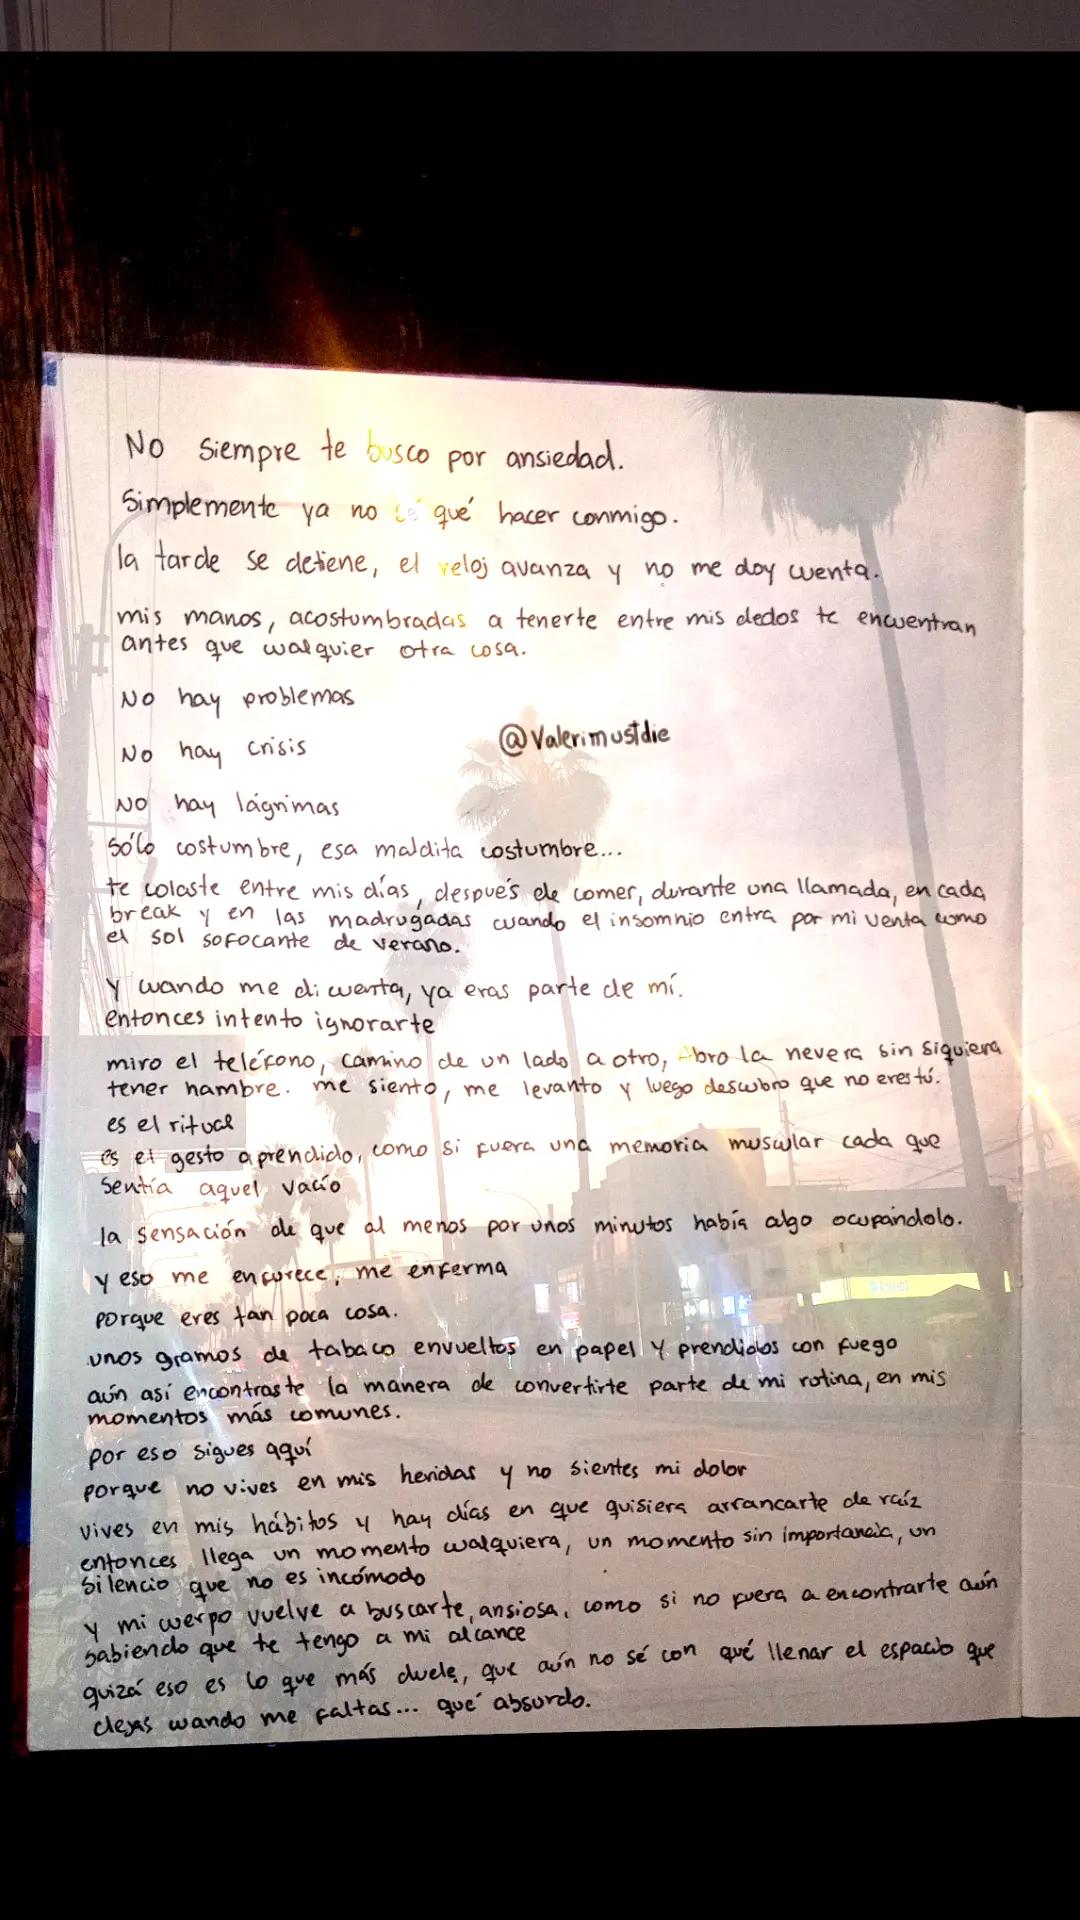 No siempre te busco por ansiedad.
Simplemente ya no sé qué hacer conmigo.
la tarde se detiene, el reloj avanza y no me doy cuenta.
mis manos, acostumbradas a tenerte entre mis dedos te encuentran
antes que cualquier otra cosa.
No hay problemas
No hay crisis
@Valerimustdie
No hay lágrimas
sólo costumbre, esa maldita costumbre...
te colaste entre mis días, después de comer, durante una llamada, en cada
break y en las madrugadas cuando el insomnio entra por mi venta como
el sol sofocante de verano.
Y cuando me di cuenta, ya eras parte de mí.
entonces intento ignorarte
miro el teléfono, camino de un lado a otro, Abro la nevera sin siquiera
tener hambre. me siento, me levanto y luego descubro que no eres tú.
es el ritual
es el gesto aprendido, como si fuera una memoria muscular cada que
sentía aquel vacío
la sensación de que al menos por unos minutos había algo ocupándolo.
y eso me enfurece, me enferma
porque eres tan poca cosa.
unos gramos de tabaco envueltos en papel y prendidos con fuego
aún así encontraste la manera de convertirte parte de mi rutina, en mis
momentos más comunes.
por eso sigues aquí
porque no vives en mis heridas y no sientes mi dolor
vives en mis hábitos y hay días en que quisiera arrancarte de raíz
entonces llega un momento cualquiera, un momento sin importancia, un
silencio que no es incómodo
y mi cuerpo vuelve a buscarte, ansiosa, como si no fuera a encontrarte aún
sabiendo que te tengo a mi alcance
quizá eso es lo que más duele, que aún no sé con qué llenar el espacio que
dejas cuando me faltas... qué absurdo.